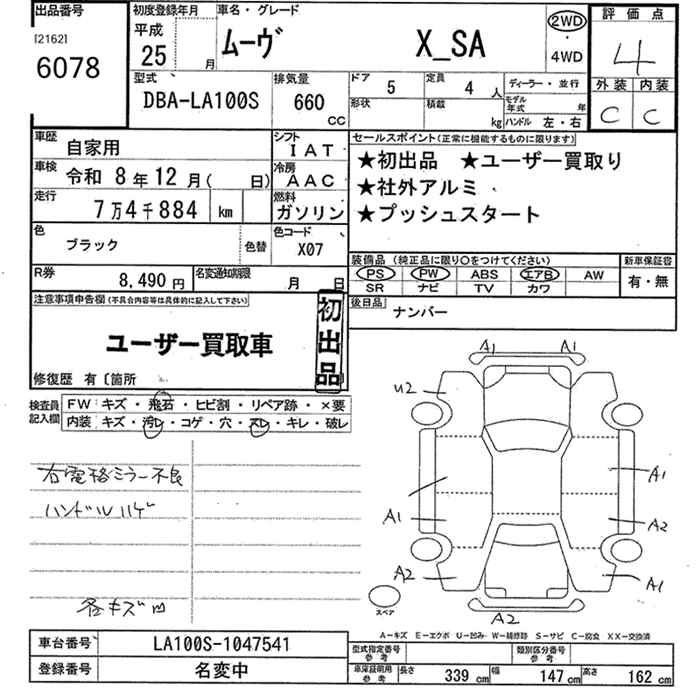 出品番号 初度登録年月 車名・グレード 2WD 評価点
[2162] 平成 ムーヴ X_SA ・ 4
6078 25 月 4WD 外装 内装
型式 排気量 ドア 5 定員 4人 ディーラー・並行 C C
DBA-LA100S 660 CC 形状 積載 kg モデル年式 年
ハンドル 左・右
車歴 自家用 シフト IAT セールスポイント(正常に機能するものに限ります)
車検 令和 8年12月( 日) 冷房 AAC ★初出品 ★ユーザー買取り
★社外アルミ
走行 7万4千884 km 燃料 ガソリン ★プッシュスタート
色 ブラック 色替 色コード X07
装備品(純正品に限り○をつけてください) 新車保証書
R券 8,490円 名変通知期限 月 日 PS PW ABS エアB AW 有・無
SR ナビ TV カワ
注意事項申告欄(不具合内容等は具体的に記入して下さい) 初出品 後日品 ナンバー
ユーザー買取車
修復歴 有〔箇所
検査員記入欄 FW キズ・飛石・ヒビ割・リペア跡・×要
内装 キズ・汚レ・コゲ・穴・スレ・キレ・破レ
A1 A1
U2
右電格ミラー不良
A1
ハンドルハゲ
A1 A2
A2 A1
各キズ凹
スペア
A2
A-キズ E-エクボ U-凹み W-補修跡 S-サビ C-腐食 XX-交換済
車台番号 LA100S-1047541 型式指定番号 参考 類別区分番号 参考
登録番号 名変中 車庫証明用 参考 長さ 339 cm 幅 147 cm 高さ 162 cm